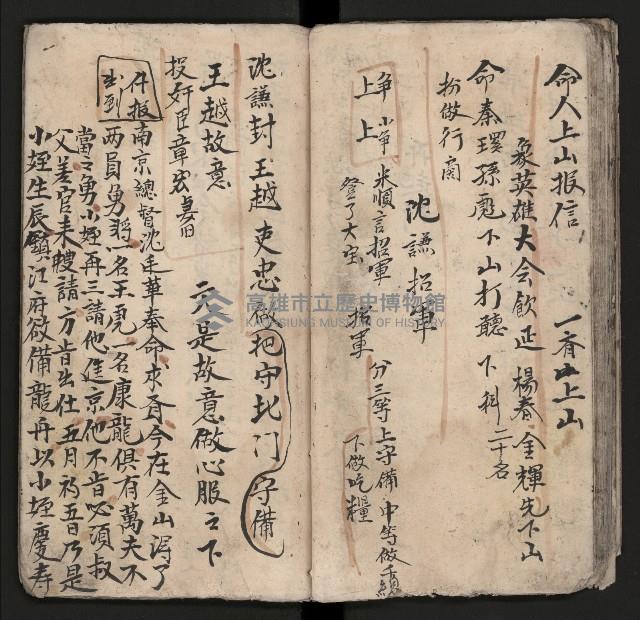 命人上山报信 一齐上山
众英雄大会飲延 楊春金輝先下山
命秦環孫彪下山打聽 下科二十名
扮做行闲
沈謙招軍
争 小争 米順言招軍 招軍 分三等上守備 中等做千總
上 上 登了大宝 下做吃糧
沈謙封王越吏忠做把守北门守備
王越故意 二人是故意做心服之下
投奸臣章宏真旧
什报 出到
南京總督沈廷華奉命求斉今在金山得了
两員勇將一名王虎一名康龍俱有萬夫不
當之勇小姪再三請他進京他不肯必須叔
父差官来聘請方肯出仕五月初五日乃是
小姪生辰鎮江府欲備龍舟以小姪慶寿
高雄市立歷史博物館
KAOHSIUNG MUSEUM OF HISTORY